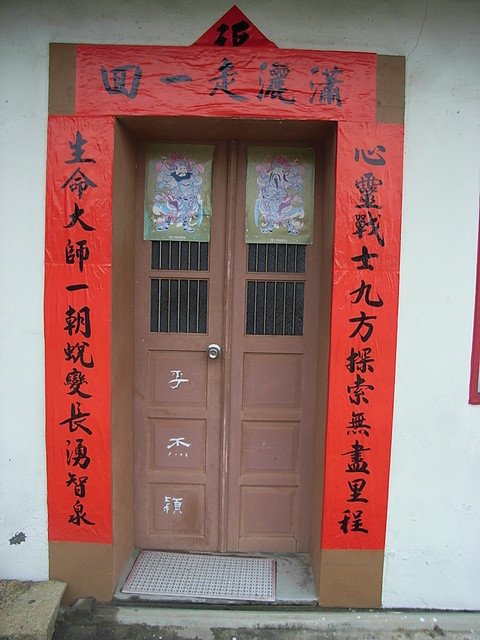 瀟灑走一回
心靈戰士九方探索無盡里程
生命大師一朝蛻變長湧智泉